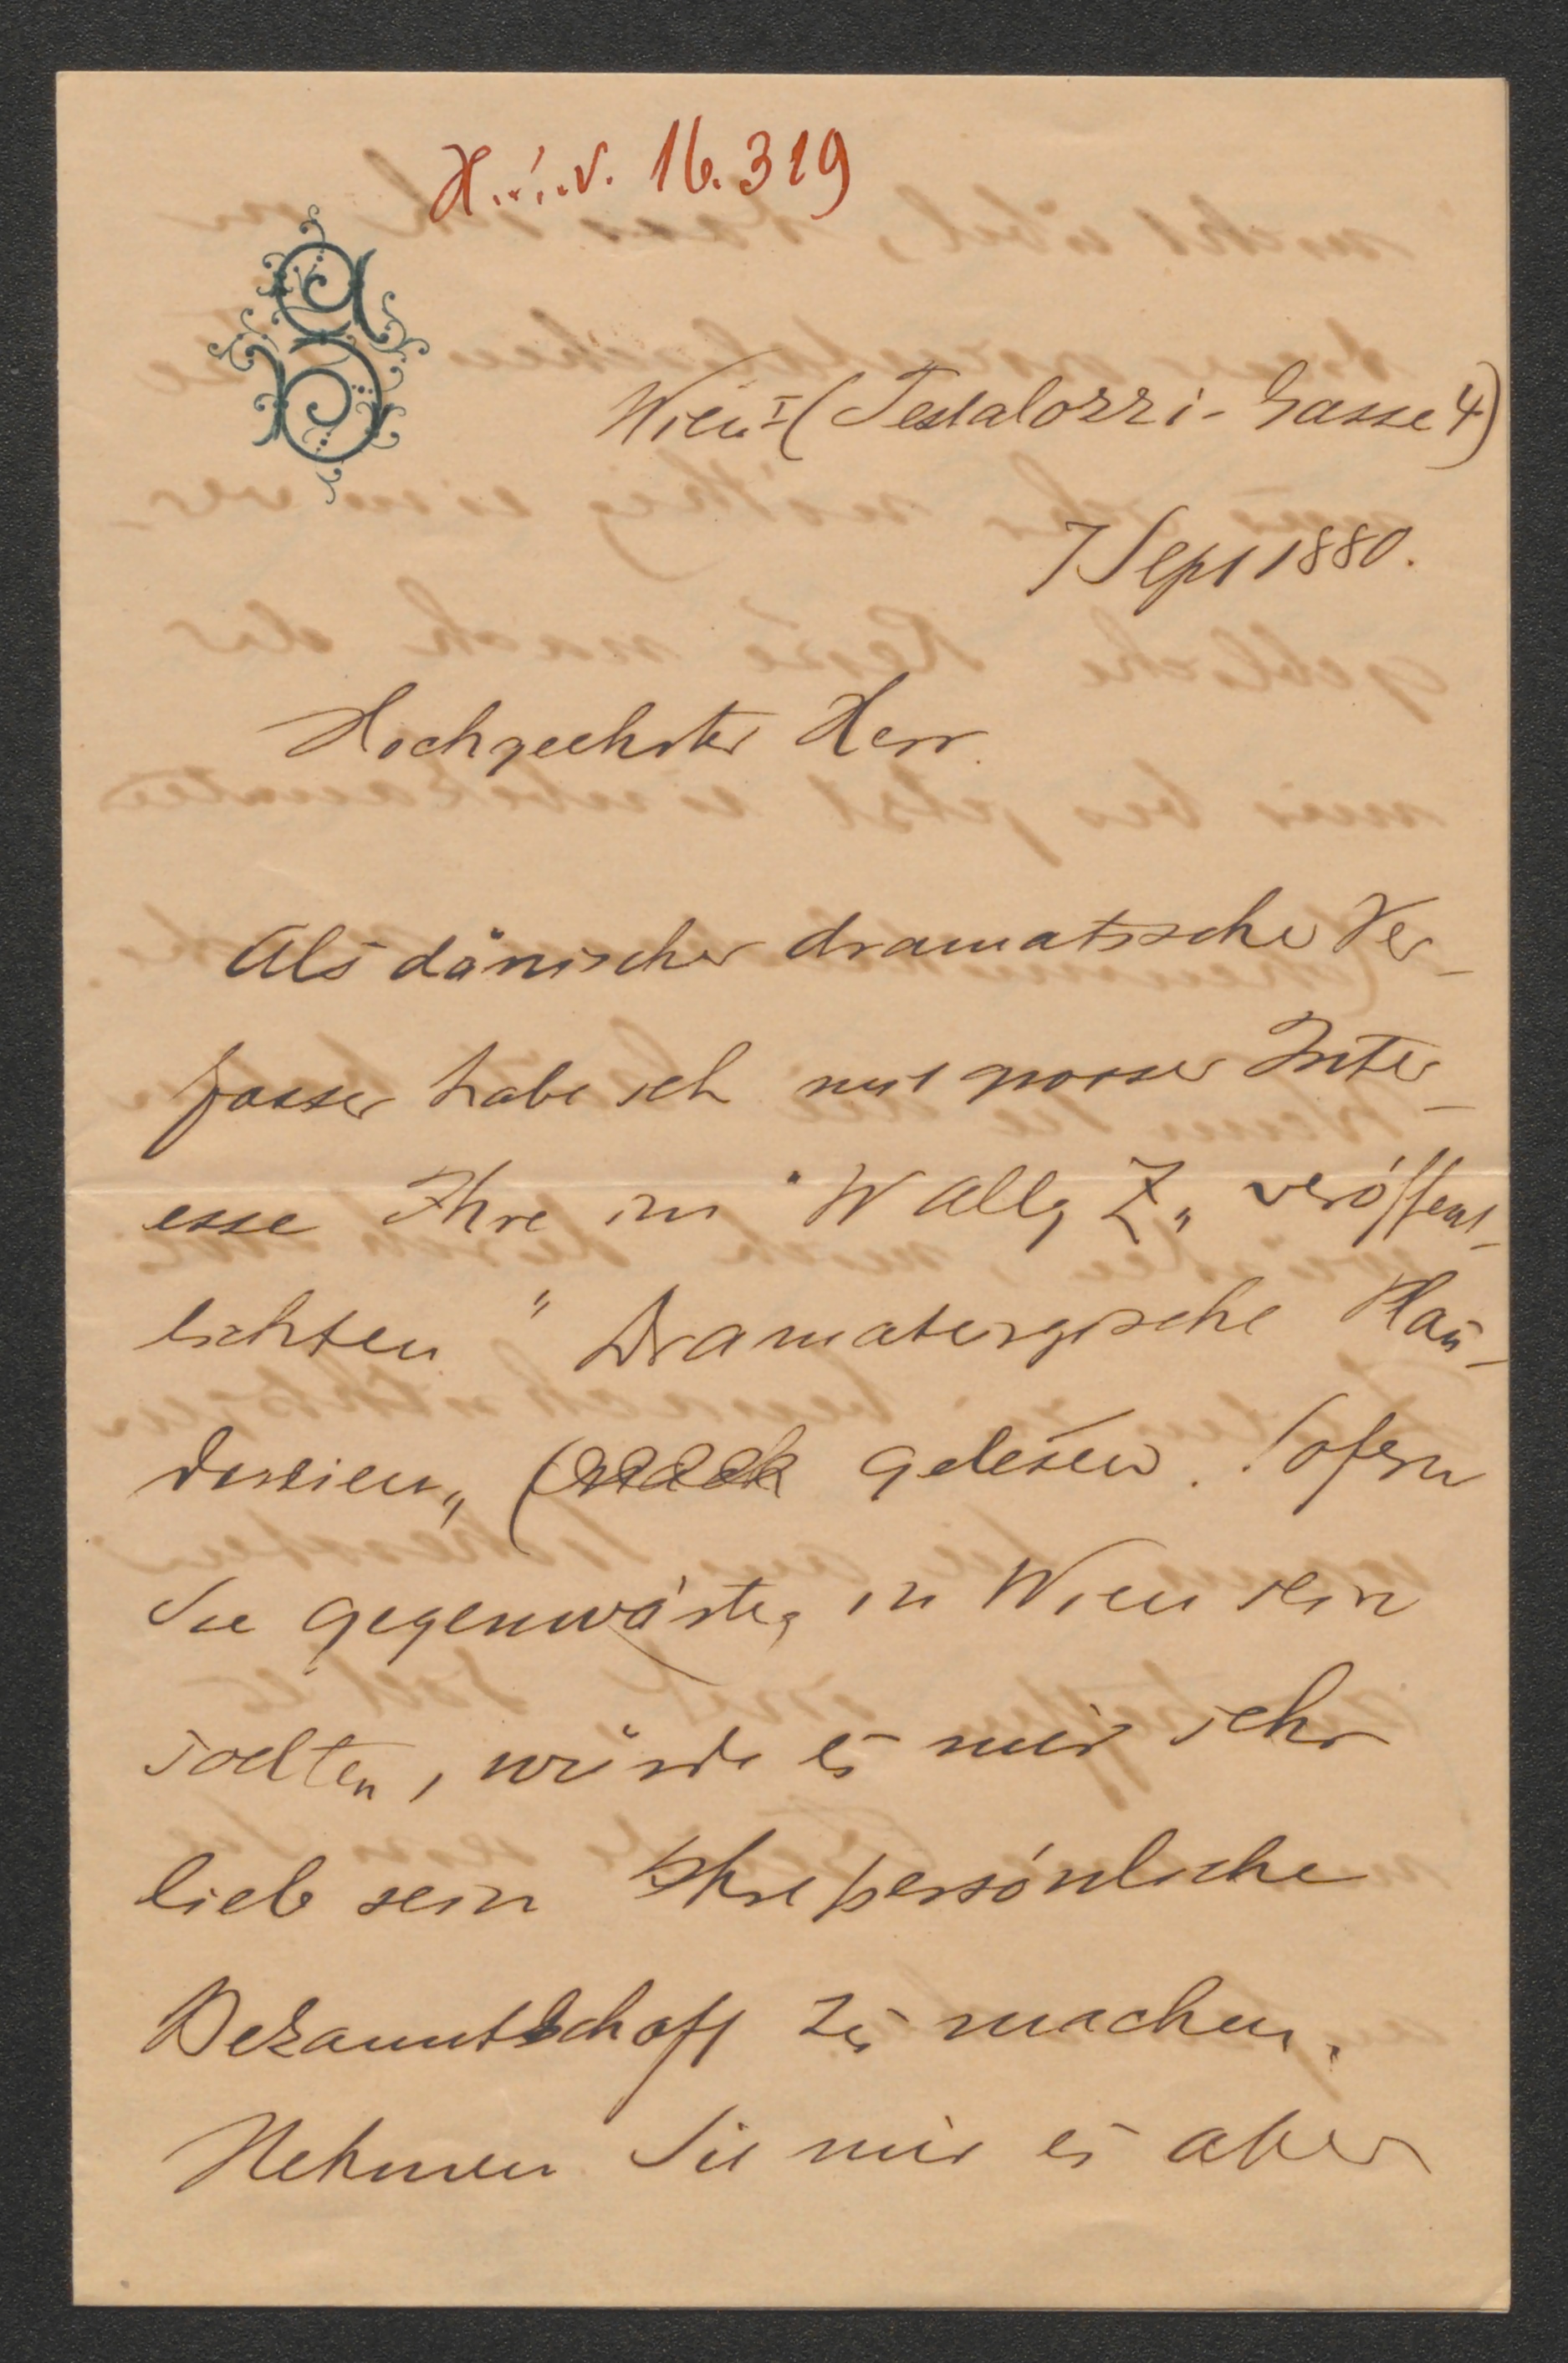 H.I.N. 16.319
Wien I (Pestalozzi-Gasse 4)
7 Sept 1880.
Hochgeehrter Herr.
Als dänischer dramatischer Ver-
fasser habe ich mit grosser Inter-
esse Ihre in "W Allg Z„ veröffent-
lichten "Dramaturgische Plau-
dereien„ gelesen. Sofern
Sie gegenwärtig in Wien sein
sollten, würde es mir sehr
lieb sein Ihre persönliche
Bekanntschaft zu machen.
Nehmen Sie mir es aber